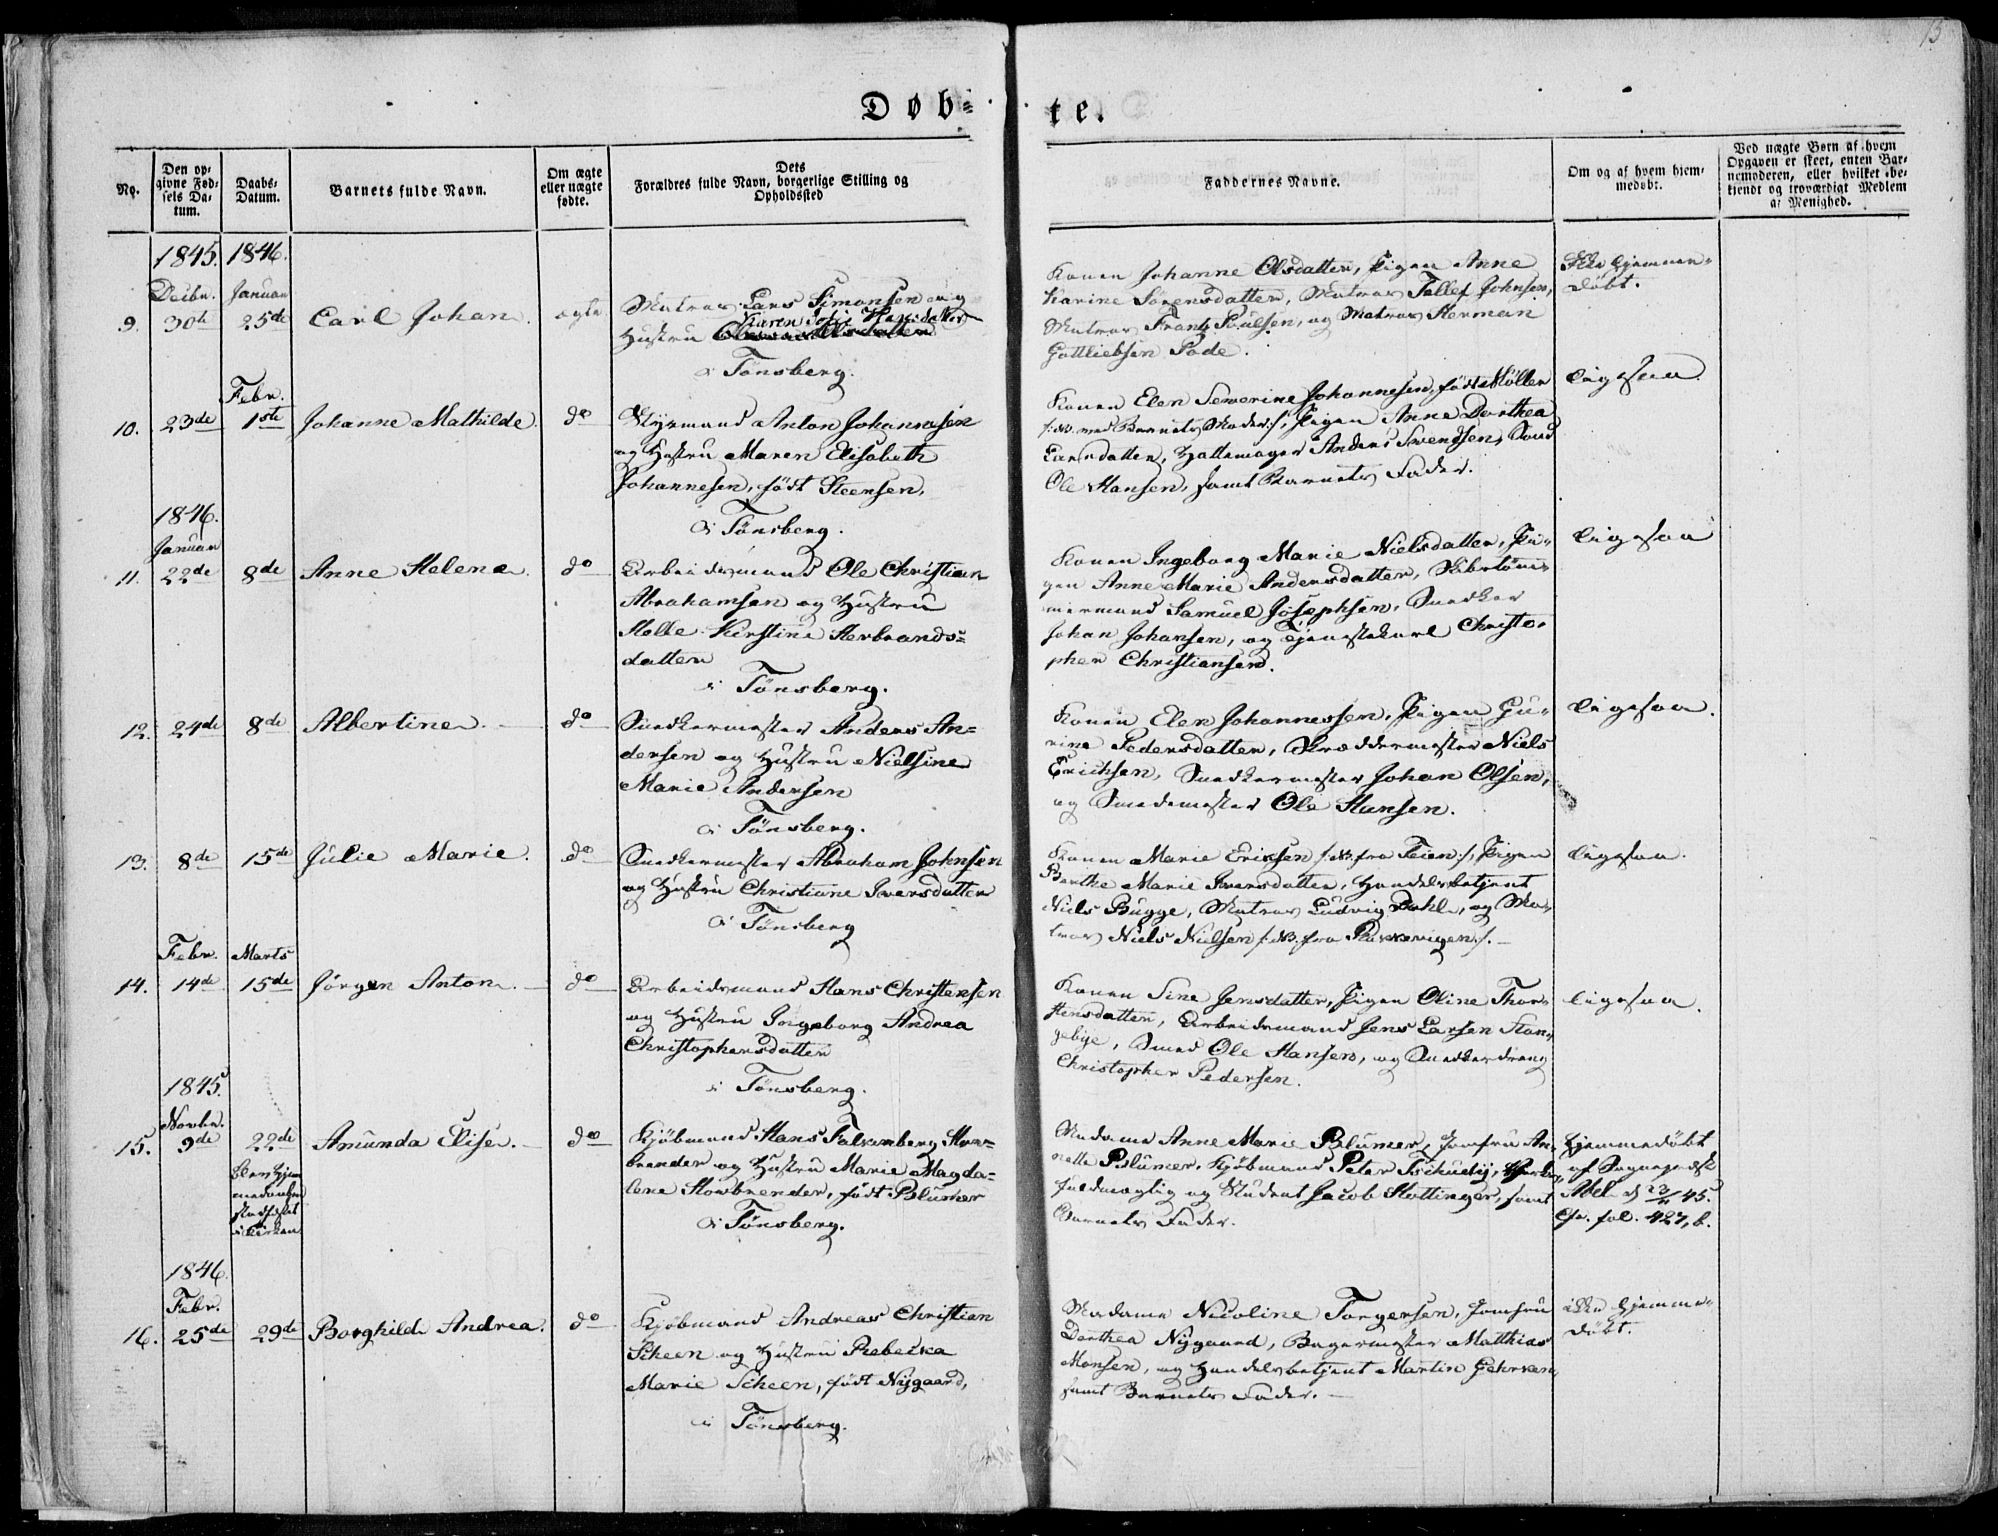 13
Døb=te.
No.
Den op-
givne Fød-
sels Da-
tum.
Daabs-
Datum.
Barnets fulde Navn.
Om ægte
eller uægte
fødte.
Dets
Forældres fulde Navn, borgerlige Stilling og
Opholdssted
Faddernes Navne.
Om og af hvem hjem-
medøbt.
Ved uægte Børn af hvem
Opgaven er skeet, enten Bar-
nemoderen, eller hvilket be-
kjendt og troværdigt Medlem
af Menighed.
1845. 1846.
Decbr. Januar
9. 30te 25de Carl Johan. ægte
Matros Lars Simonsen og
Karen Hansdatter
Hustru
i Tönsberg.
Konen Johanne Olsdatter, Pigen Anne
Karine Sörensdatter, Matros Tellef Johnsen,
Matros Frantz Paulsen, og Matros Herman
Gottliebsen Pade.
Ikke hjemme-
döbt.
Febr.
10. 23de 1ste Johanne Mathilde. do
Styrmand Anton Johannesen
og Hustru Maren Elisabeth
Johannesen, födt Steensen,
i Tönsberg.
Konen Elen Severine Johannesen, födt Möller
/: NB. med Barnets Moder :/, Pigen Anne Dorthea
Larsdatter, Hattemager Anders Svendsen, Smed
Ole Hansen, samt Barnets Fader.
ligesaa.
1846.
Januar
11. 22de 8de Anne Helene. do
Arbeidsmand Ole Christian
Abrahamsen og Hustru
Helle Kirstine Herbrands=
datter
i Tönsberg.
Konen Ingeborg Marie Nielsdatter, Pi-
gen Anne Marie Andersdatter, Skibstöm-
mermand Samuel Josephsen, Snedker
Johan Johansen, og Tjenestekarl Christo-
pher Christiansen.
ligesaa
12. 24de 8de Albertine. do
Snedkermester Anders An=
dersen og Hustru Nielsine
Marie Andersen
i Tönsberg.
Konen Elen Johannessen, Pigen Gu-
rine Pedersdatter, Skræddermester Niels
Erichsen, Snedkermester Johan Olsen,
og Smedemester Ole Hansen.
ligesaa.
13. 8de 15de Julie Marie. do
Snedkermester Abraham Johnsen
og Hustru Christiane Iversdatter
i Tönsberg
Konen Marie Eriksen /: NB. fra Teien :/, Pigen
Berthe Marie Iversdatter, Handelsbetjent
Niels Bugge, Matros Ludvig Dahl, og Ma-
tros Niels Nielsen /: NB. fra :/.
ligesaa.
Febr. Marts
14. 14de 15de Jörgen Anton. do
Arbeidsmand Hans Christensen
og Hustru Ingeborg Andrea
Christophersdatter
i Tönsberg.
Konen Sine Jensdatter, Pigen Oline Thor-
stensdatter, Arbeidsmand Jens Larsen Stan-
gebye, Smed Ole Hansen, og Snedkerdreng
Christopher Pedersen.
ligesaa.
1845.
Novbr.
15. 9de 22de Amunda Elise. do
blev hjem-
medaaben
stadfæstet
i Kirken
Kjöbmand Hans Falkenberg Hor-
brender og Hustru Marie Magda-
lene Horbrender, födt Blumer
i Tönsberg.
Madame Anne Marie Blumer, Jomfru An-
nette Blumer, Kjöbmand Peter Tschudij,
fuldmægtig og Student Jacob Hottinger, samt
Barnets Fader.
hjemmedöbt
af Sognepræst
Abel d 45.
Cfr. fol. 427, b.
1846.
Febr.
16. 25de 29de Borghilde Andrea. do
Kjöbmand Andreas Christian
Scheen og Hustru Rebekka
Marie Scheen, födt Nygaard,
i Tönsberg.
Madame Nicoline Torgersen, Jomfru
Dorthea Nygaard, Bagermester Matthias
Monsen, og Handelsbetjent Martin Gehrken,
samt Barnets Fader.
ikke hjemme-
döbt.